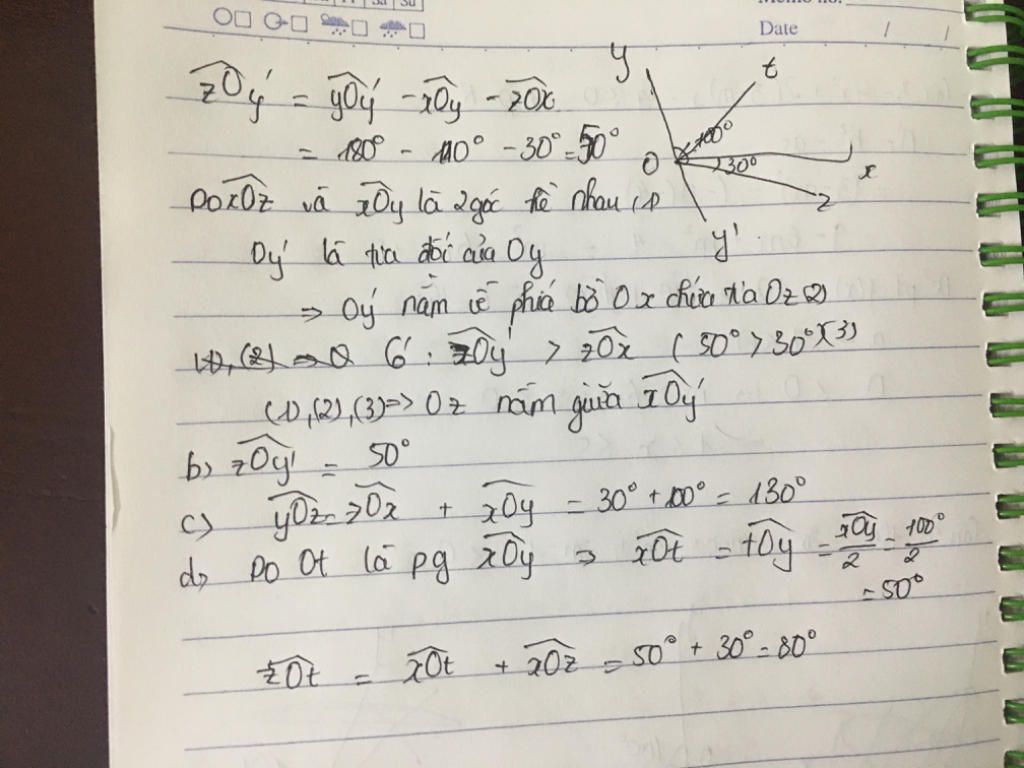 Sa Su
Memo no.
Date / /
y t
zOy' = yOy' - xOy - zOx
100°
= 180° - 100° - 30° = 50°
O 30° x
Do xOz và xOy là 2 góc kề nhau (1)
z
y'
Oy' là tia đối của Oy
=> Oy' nằm về phiá bờ Ox chứa tia Oz (2)
(1), (2) => O Có : zOy' > zOx (50° > 30°)(3)
(1), (2), (3) => Oz nằm giữa xOy'
b) zOy' = 50°
c) yOz = zOx + xOy = 30° + 100° = 130°
d) Do Ot là pg xOy => xOt = tOy = xOy/2 = 100°/2
= 50°
zOt = xOt + xOz = 50° + 30° = 80°